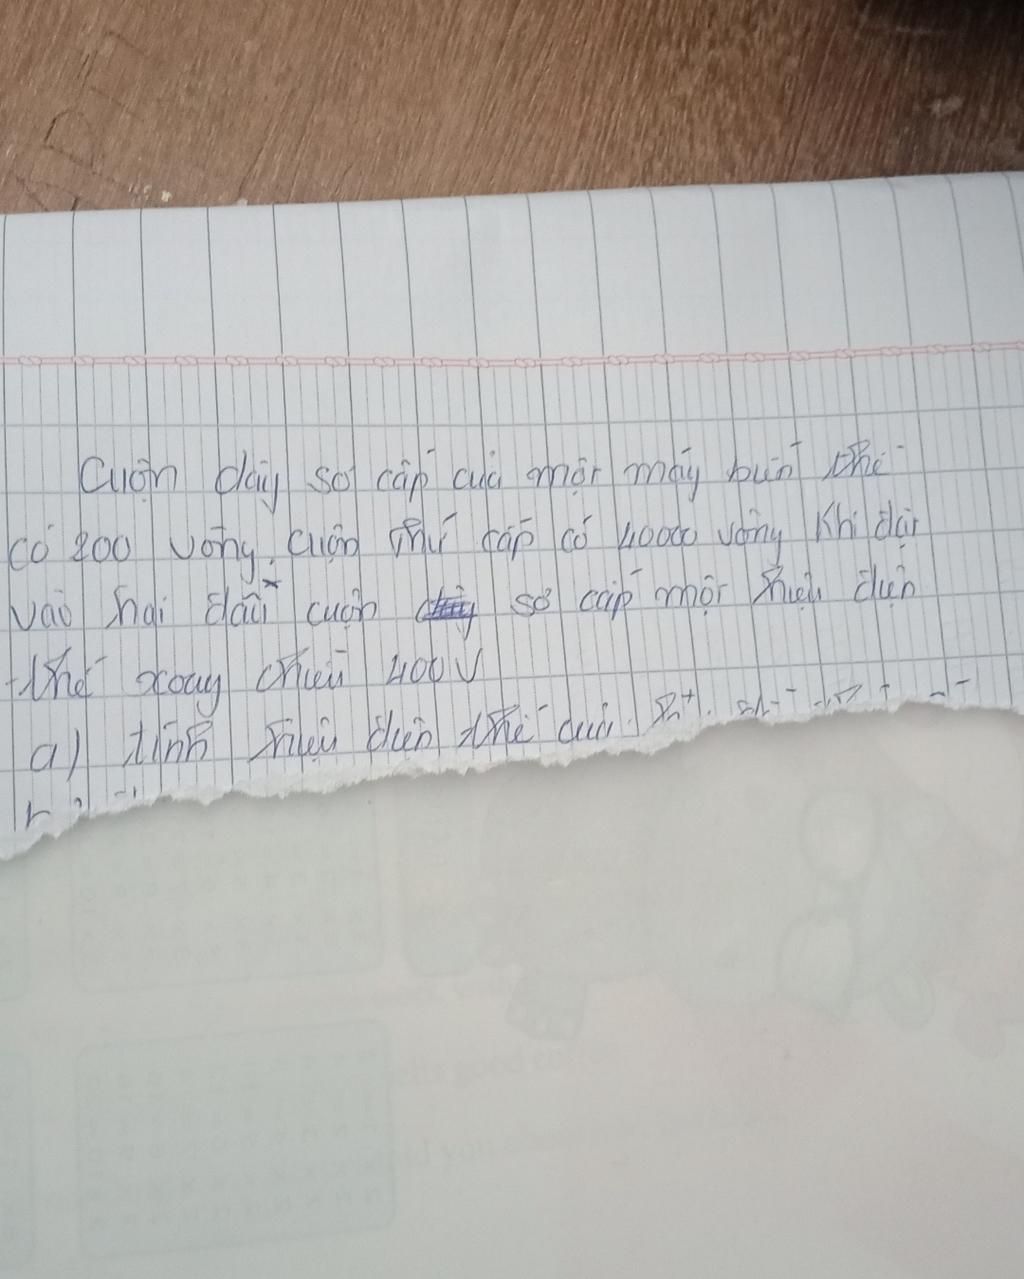 Cuộn dây sơ cấp của một máy biến thế
có 200 vòng, cuộn thứ cấp có 40000 vòng Khi đặt
vào hai đầu cuộn sơ cấp một hiệu điện
thế xoay chiều 400V
a) tính hiệu điện thế của